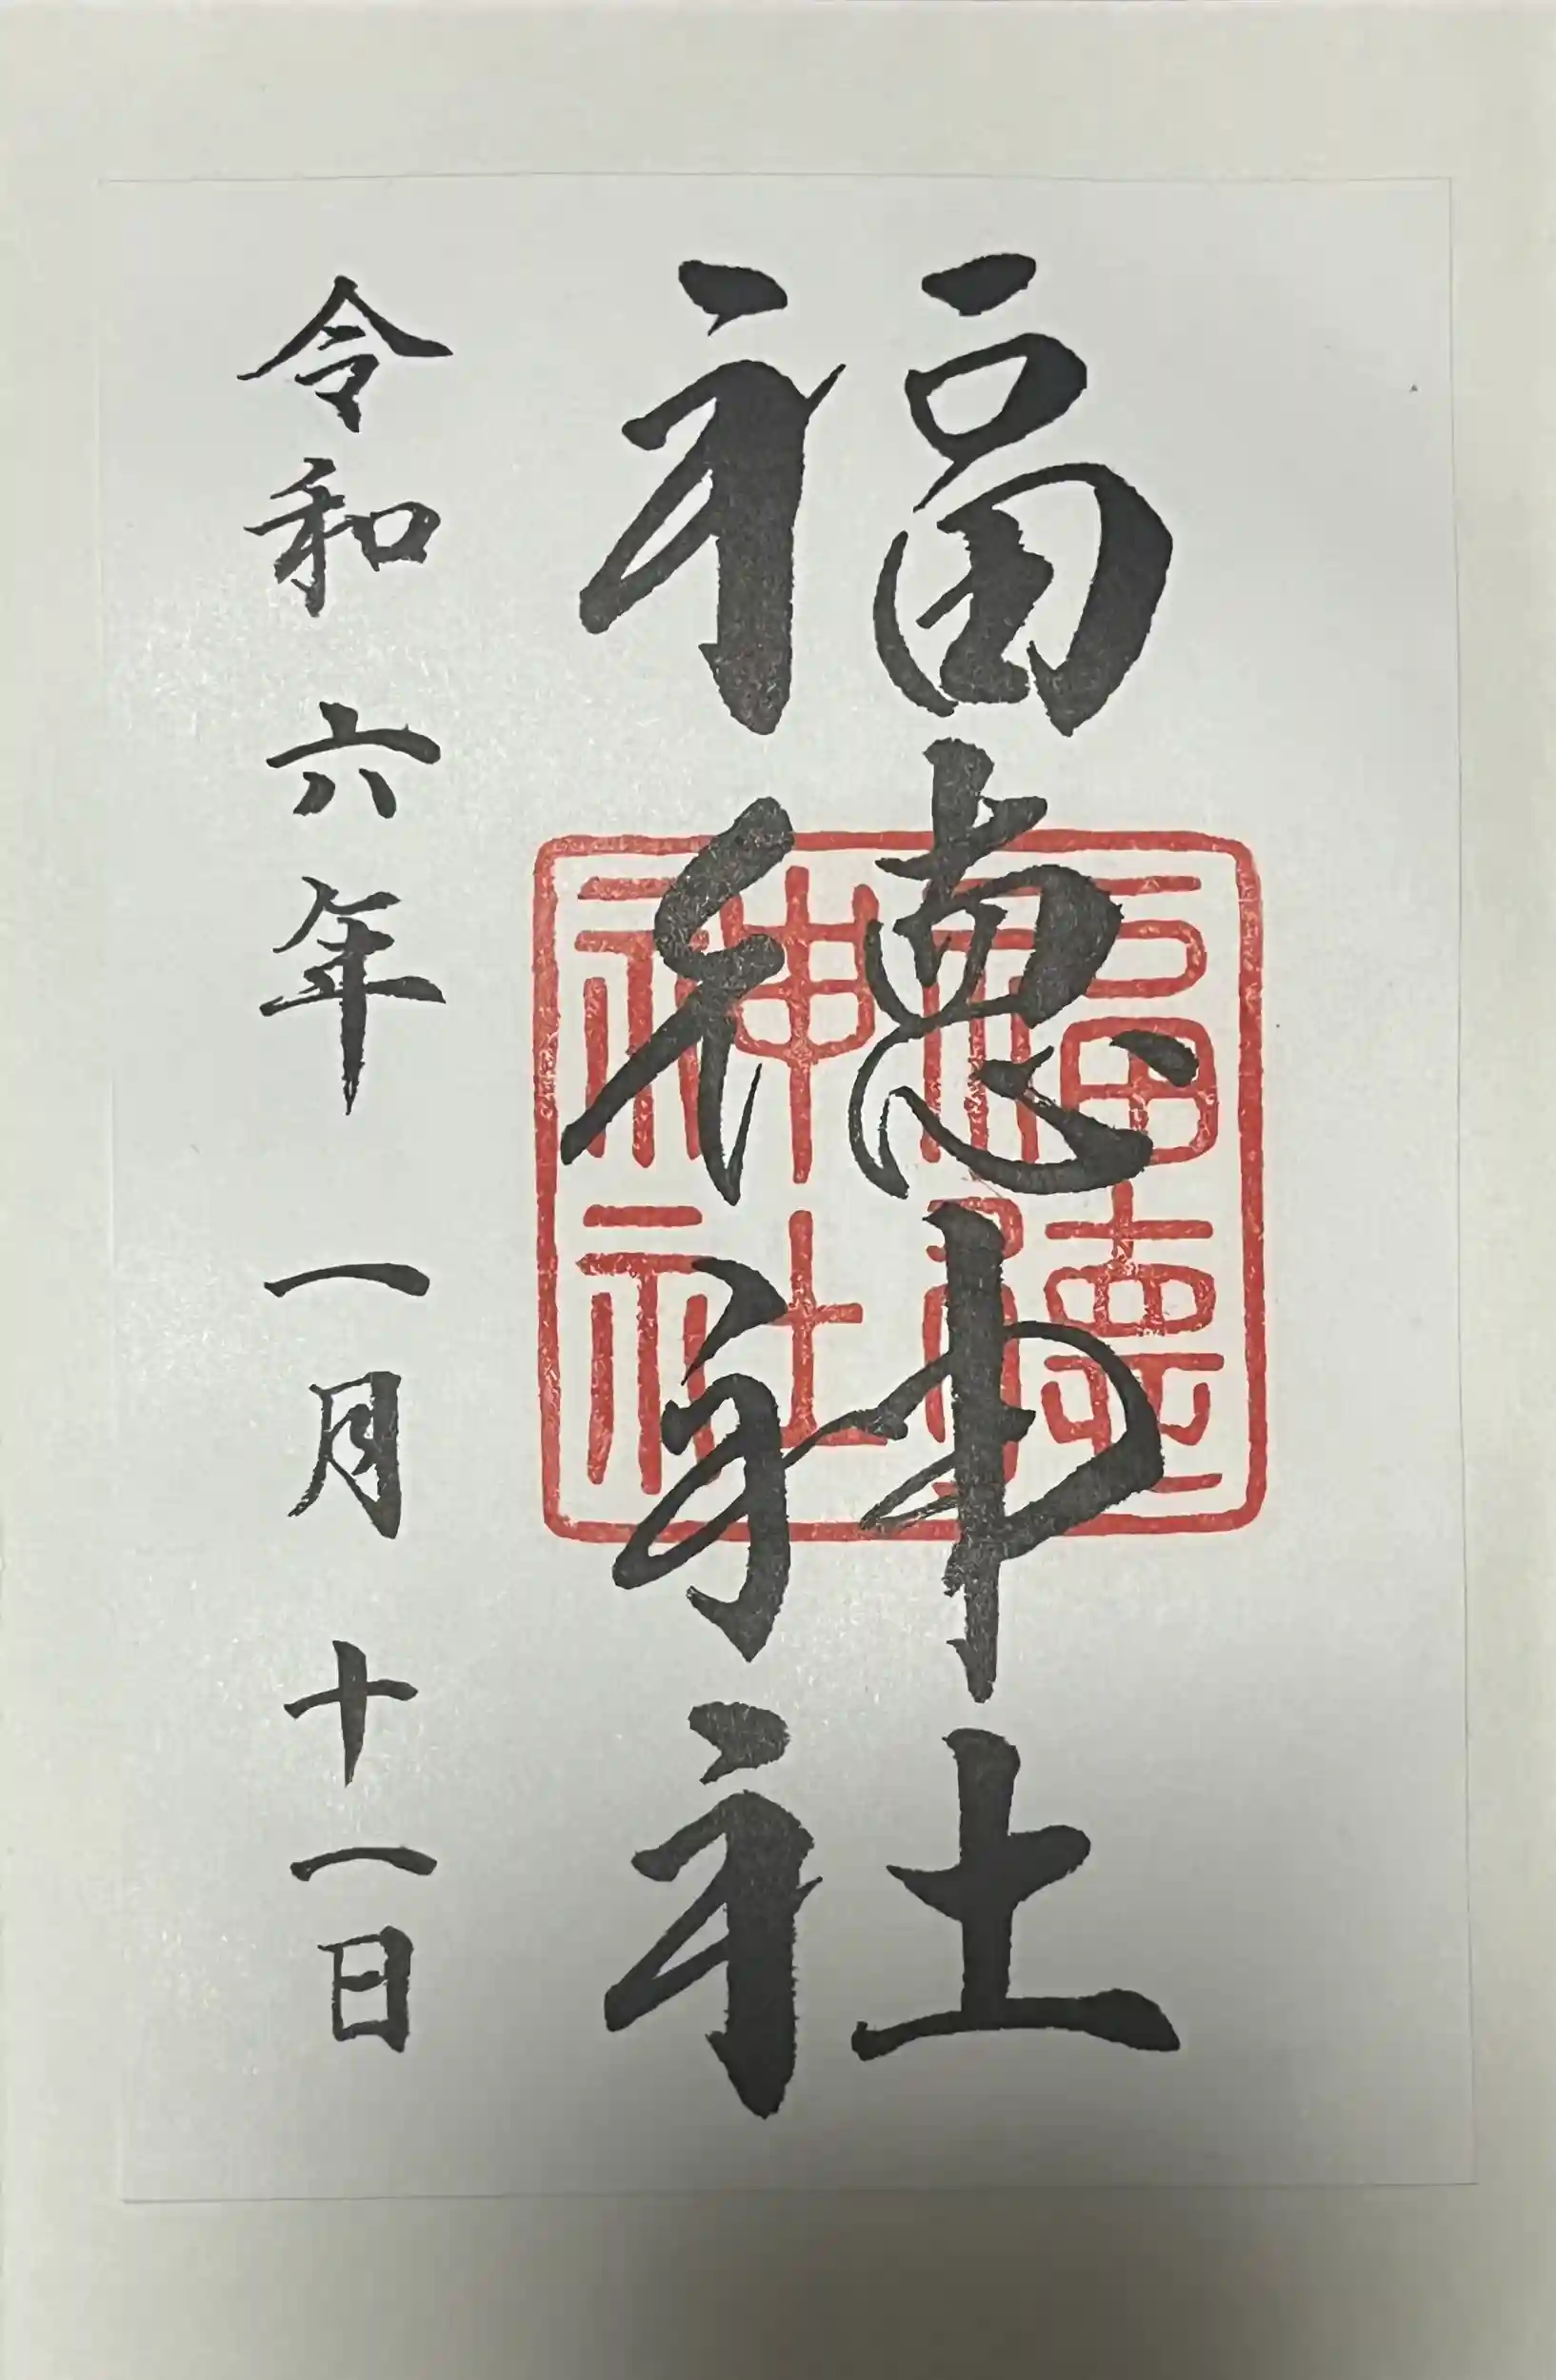 福徳神社
令和六年 一月十一日
福徳
神社